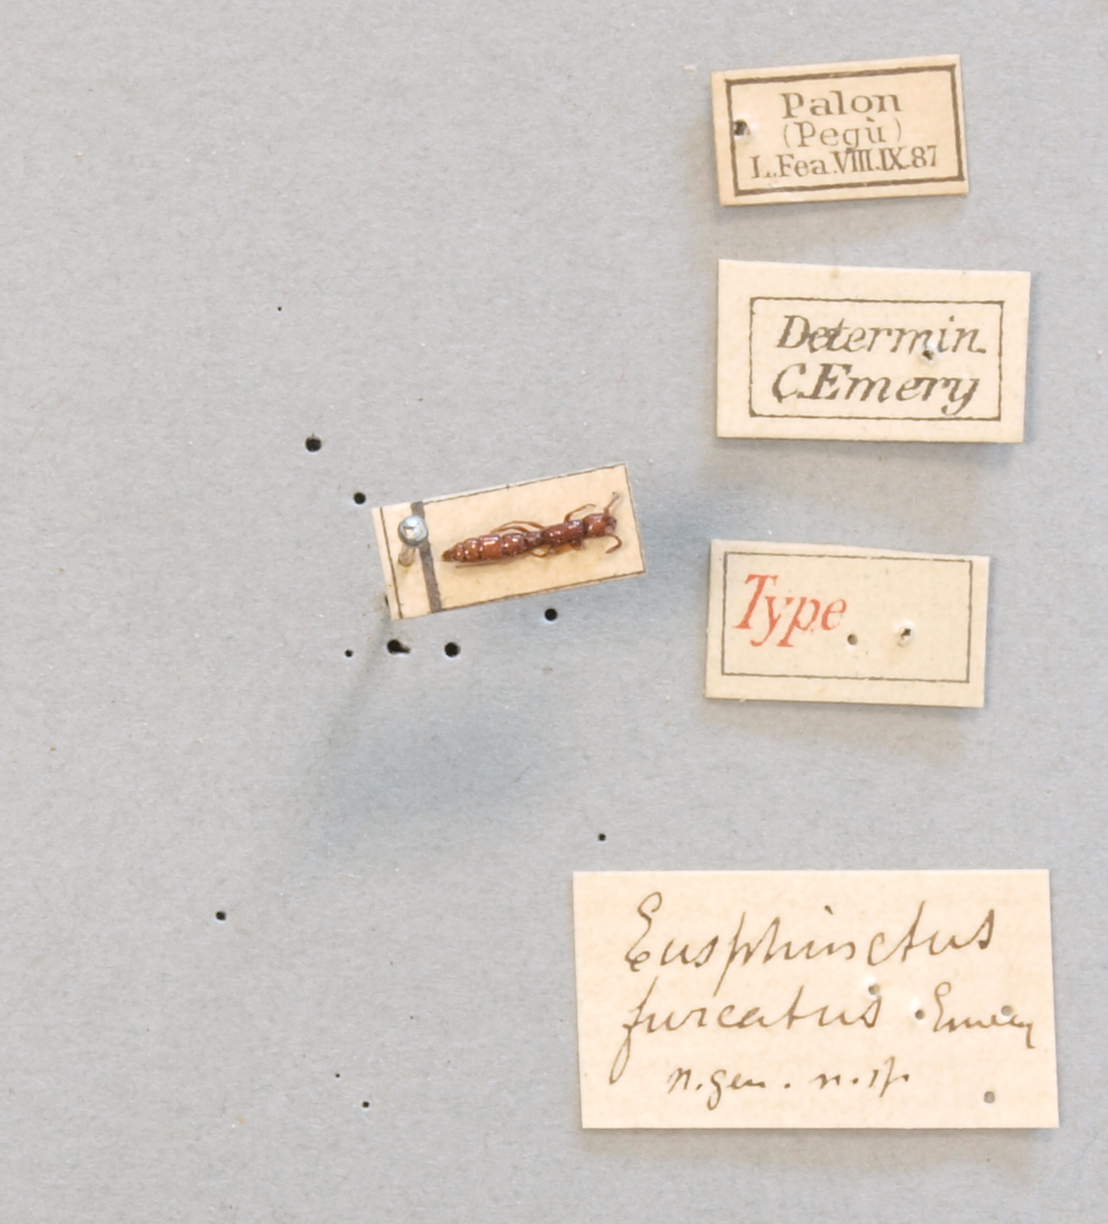 Palon
(Pegù)
L.Fea.VIII.IX.87
Determin.
C.Emery
Type
Eusphinctus
furcatus Emery
n.gen. n.sp.